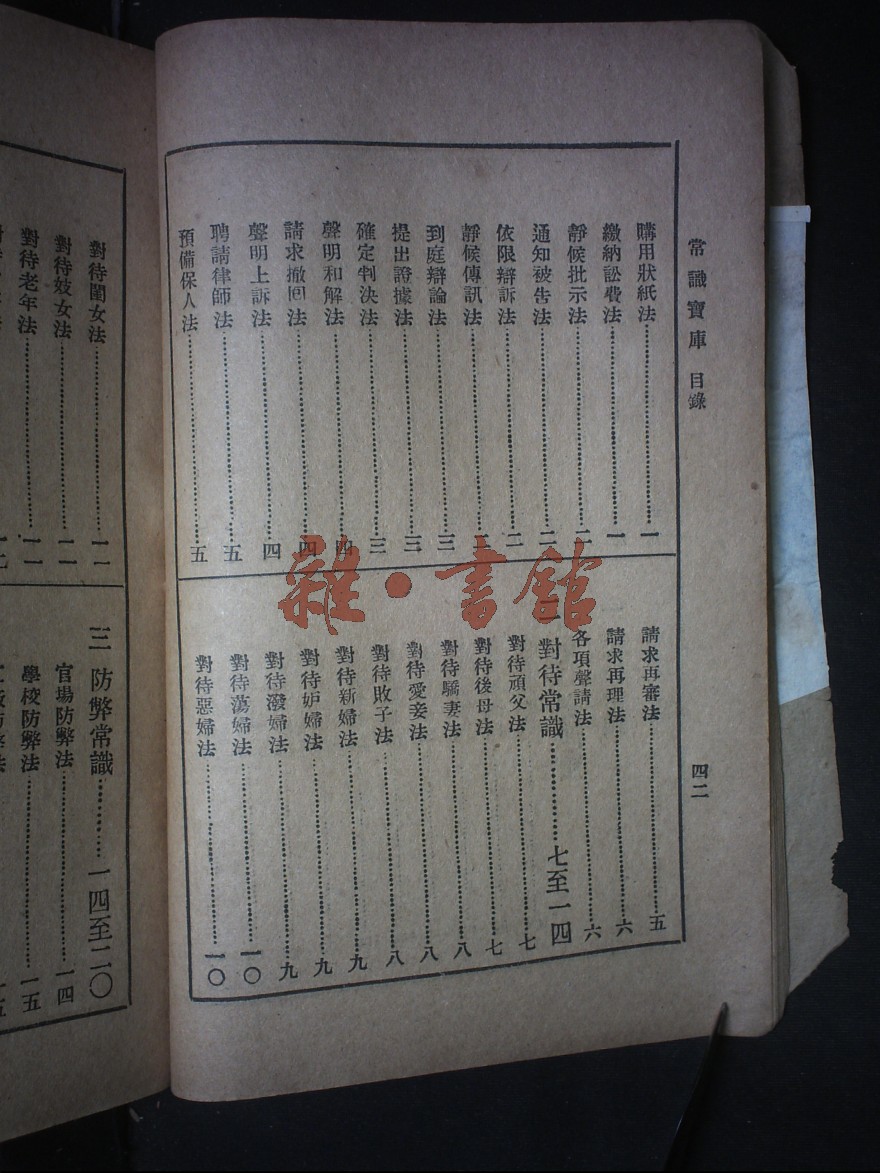 常識寶庫 目錄
四二
購用狀紙法……一
繳納訟費法……一
靜候批示法……二
通知被告法……二
依限辯訴法……二
靜候傳訊法
到庭辯論法……三
提出證據法……三
確定判決法……三
聲明和解法……四
請求撤回法……四
聲明上訴法……四
聘請律師法……五
預備保人法……五
請求再審法……五
請求再理法……六
各項聲請法……六
二 對待常識……七至一四
對待頑父法……七
對待後母法……七
對待驕妻法……八
對待愛妾法……八
對待敗子法……八
對待新婦法……九
對待妒婦法……九
對待潑婦法……九
對待蕩婦法……一〇
對待惡婦法……一〇
對待閨女法……一一
對待妓女法……一一
對待老年法……一一
三 防弊常識……一四至二〇
官場防弊法……一四
學校防弊法……一五
雜·書館